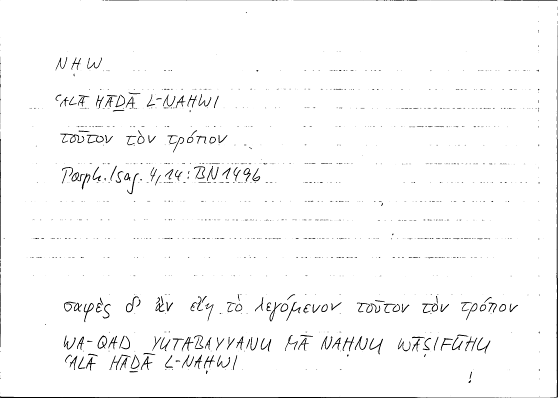 NḤW
ʿALĀ HĀḎĀ L-NAḤWI
τοῦτον τὸν τρόπον
Porph. Isag. 4,14: BN 149b
σαφὲς δ' ἂν εἴη τὸ λεγόμενον τοῦτον τὸν τρόπον
WA-QAD YUTABAYYANU MĀ NAḤNU WĀṢIFŪHU
ʿALĀ HĀḎĀ L-NAḤWI
!